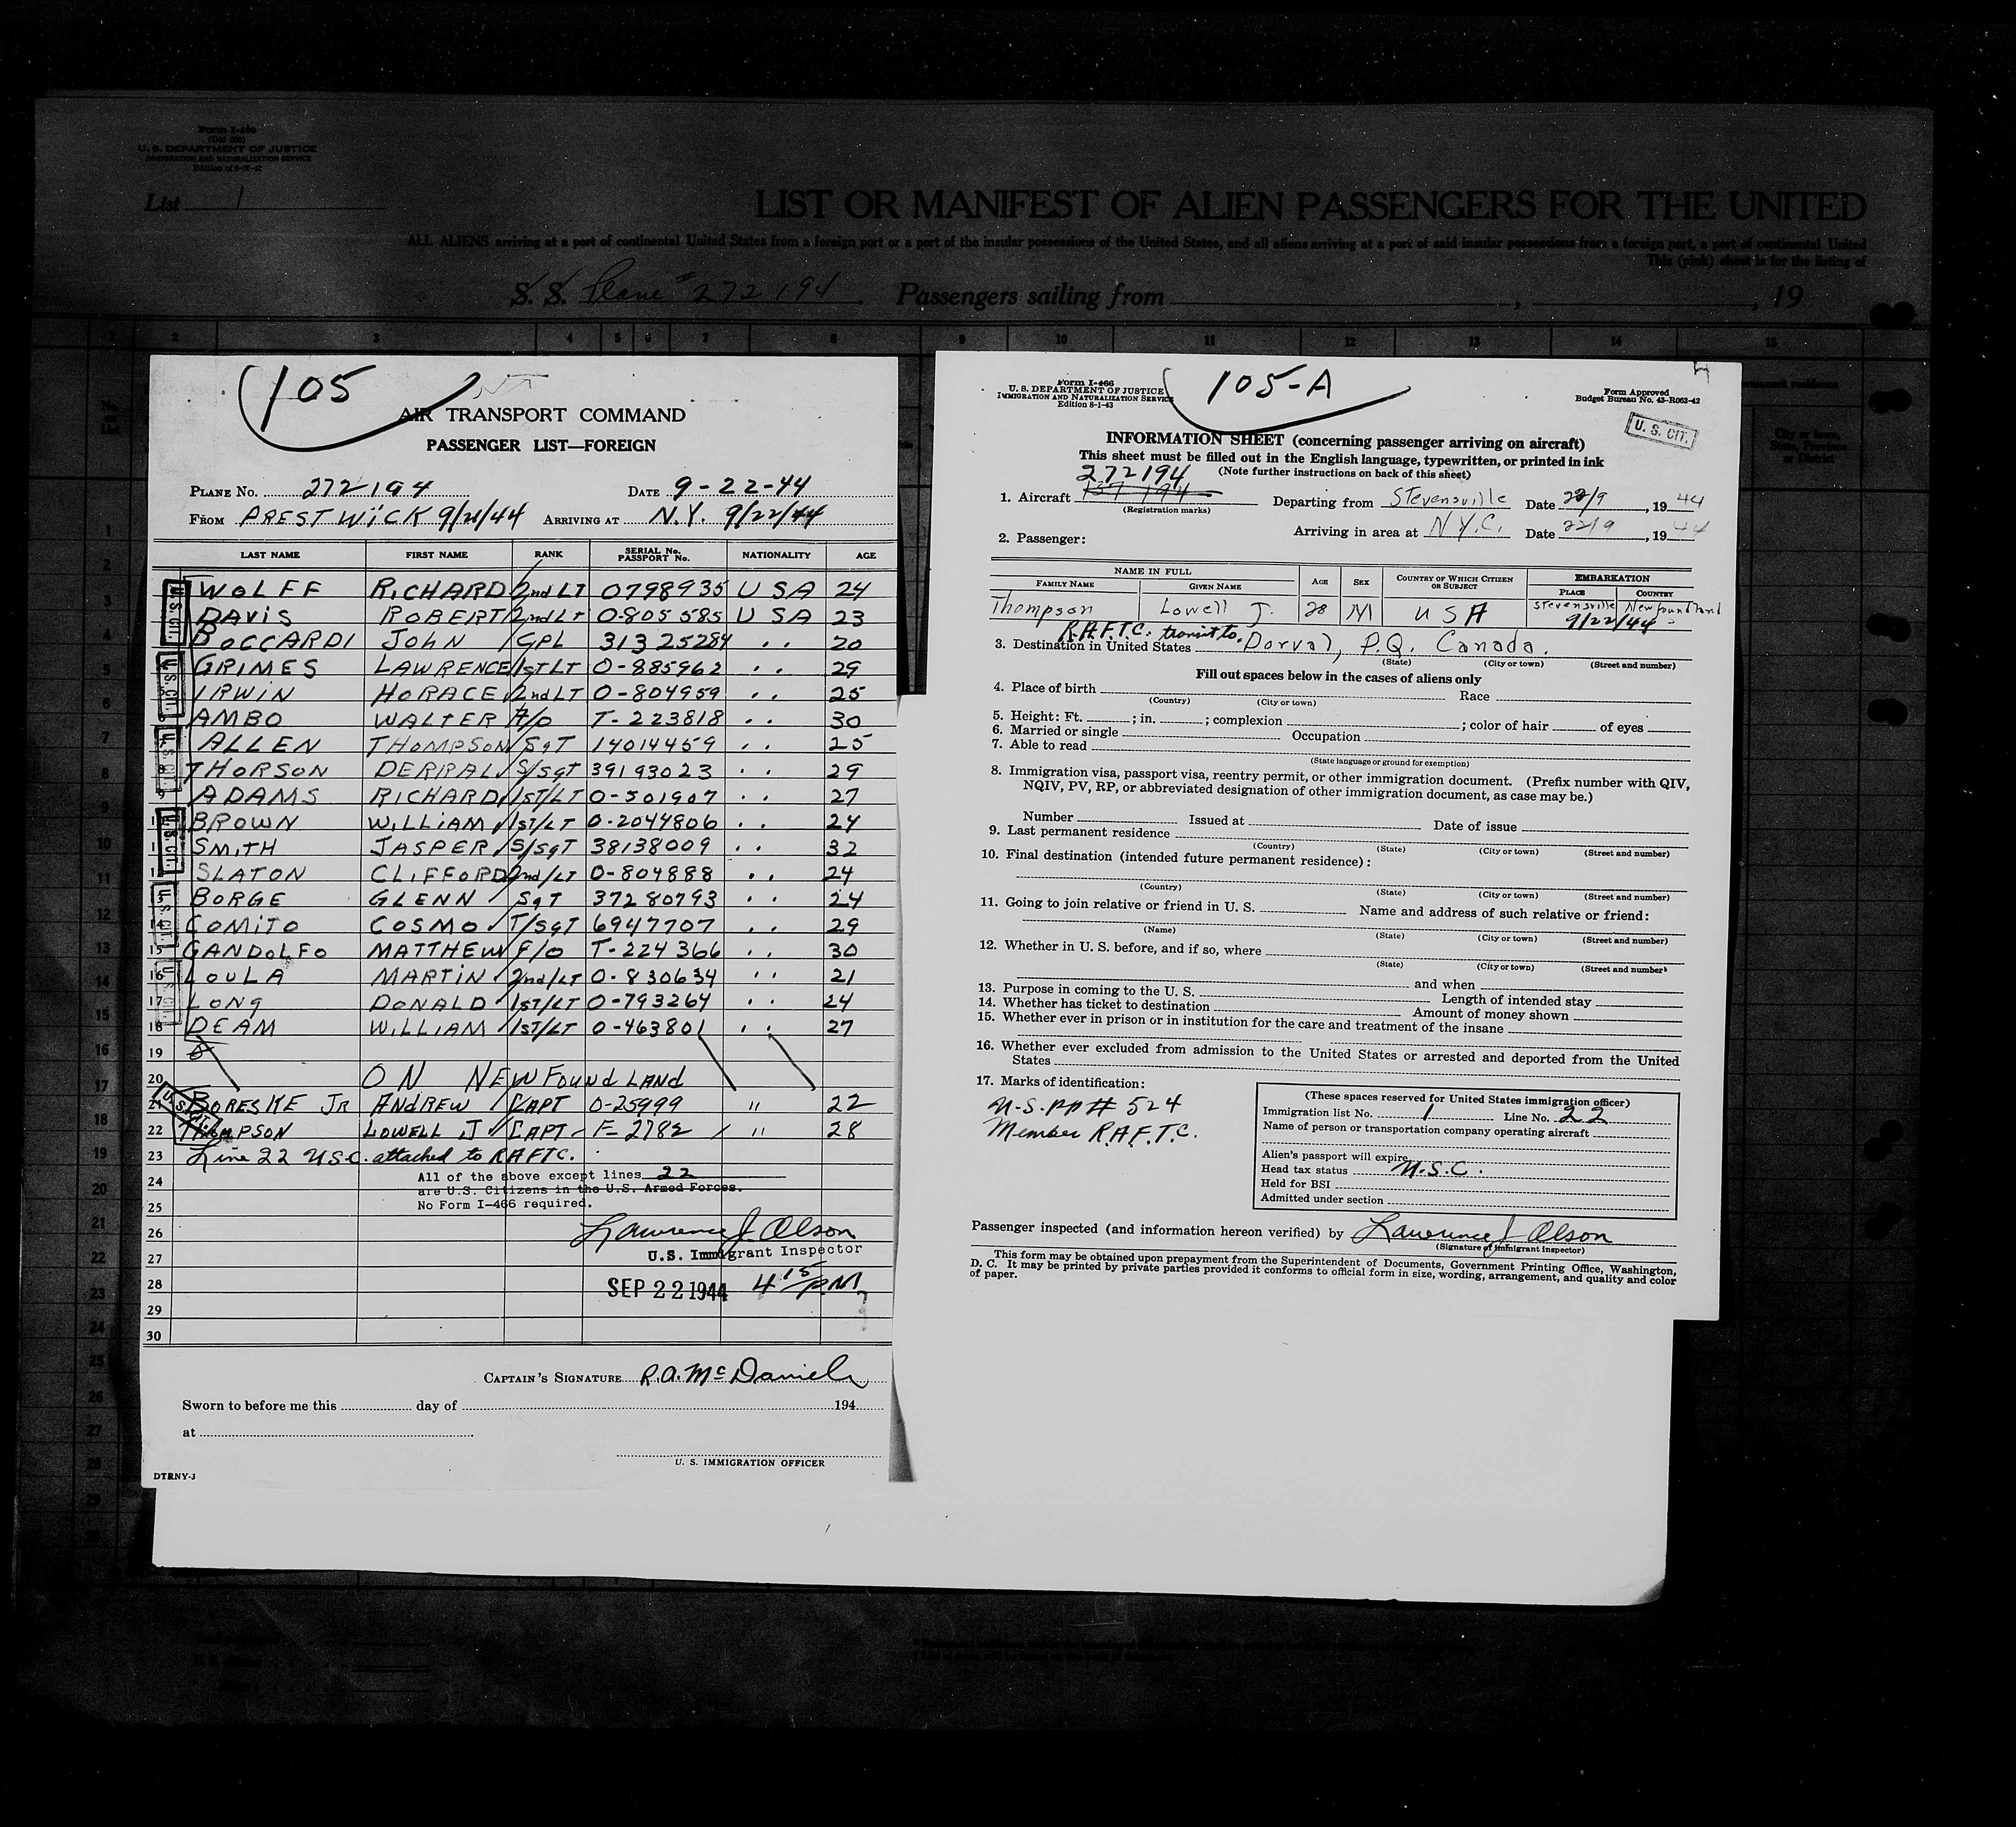 Form I-466
(Old 500)
U. S. DEPARTMENT OF JUSTICE
IMMIGRATION AND NATURALIZATION SERVICE
List 1
LIST OR MANIFEST OF ALIEN PASSENGERS FOR THE UNITED
ALL ALIENS arriving at a port of continental United States from a foreign port or a port of the insular possessions of the United States, and all aliens arriving at a port of said insular possessions from a foreign port, a port of continental United
This (pink) sheet is for the listing of
S. S. Plane # 272194. Passengers sailing from , , 19
1 2 3 4 5 6 7 8 9 10 11 12 13 14 15
105
AIR TRANSPORT COMMAND
PASSENGER LIST—FOREIGN
PLANE No. 272194 DATE 9-22-44
FROM PRESTWICK 9/21/44 ARRIVING AT N.Y. 9/22/44
LAST NAME FIRST NAME RANK SERIAL No. PASSPORT No. NATIONALITY AGE
WOLFF RICHARD 2nd LT 0798935 U S A 24
DAVIS ROBERT 2nd LT 0-805585 U S A 23
BOCCARDI JOHN CPL 31325284 . . 20
GRIMES LAWRENCE 1ST LT O-885962 . . 29
IRWIN HORACE 2nd LT O-804959 . . 25
AMBO WALTER F/O T-223818 . . 30
ALLEN THOMPSON SgT 14014459 . . 25
THORSON DERRAL S/SgT 39193023 . . 29
ADAMS RICHARD 1ST/LT O-501907 . . 27
BROWN WILLIAM 1ST/LT O-2044806 . . 24
SMITH JASPER S/SgT 38138009 . . 32
SLATON CLIFFORD 2nd/LT O-804888 . . 24
BORGE GLENN SgT 37280793 . . 24
COMITO COSMO T/SgT 6947707 . . 29
GANDOLFO MATTHEW F/O T-224366 . . 30
16 LOULA MARTIN 2nd/LT O-830634 . . 21
17 LONG DONALD 1ST/LT O-793264 . . 24
18 DEAM WILLIAM 1ST/LT O-463801 . . 27
19
20 ON NEWFOUNDLAND
21 BORESKE JR ANDREW CAPT O-25999 " 22
22 THOMPSON LOWELL J CAPT F-2782 " 28
23 Line 22 U.S.C. attached to RAFTC.
24 All of the above except lines 22
are U.S. Citizens in the U.S. Armed Forces.
25 No Form I-466 required.
26 Lawrence J Olson
27 U.S. Immigrant Inspector
28 SEP 22 1944 4 15 P.M.
29
30
CAPTAIN'S SIGNATURE R.A. McDaniel
Sworn to before me this day of 194
at
U. S. IMMIGRATION OFFICER
DTRNY-3
U.S. CIT.
U.S. CIT.
U.S. CIT.
U.S. CIT.
U.S. CIT.
U.S. CIT.
U.S. CIT.
Form I-466
U. S. DEPARTMENT OF JUSTICE
IMMIGRATION AND NATURALIZATION SERVICE
Edition 8-1-43
105-A
Form Approved
Budget Bureau No. 43-R063-42
U. S. CIT.
INFORMATION SHEET (concerning passenger arriving on aircraft)
This sheet must be filled out in the English language, typewritten, or printed in ink
(Note further instructions on back of this sheet)
272194
1. Aircraft Departing from Stevensville Date 22/9, 19 44
(Registration marks)
Arriving in area at N.Y.C. Date 22/9, 19 44
2. Passenger:
NAME IN FULL AGE SEX COUNTRY OF WHICH CITIZEN OR SUBJECT EMBARKATION
FAMILY NAME GIVEN NAME PLACE COUNTRY
Thompson Lowell J. 28 M U S A Stevensville Newfoundland
9/22/44
R.A.F.T.C. transit to
3. Destination in United States Dorval, P.Q. Canada.
(State) (City or town) (Street and number)
Fill out spaces below in the cases of aliens only
4. Place of birth Race
(Country) (City or town)
5. Height: Ft. ; in. ; complexion ; color of hair of eyes
6. Married or single Occupation
7. Able to read
(State language or ground for exemption)
8. Immigration visa, passport visa, reentry permit, or other immigration document. (Prefix number with QIV,
NQIV, PV, RP, or abbreviated designation of other immigration document, as case may be.)
Number Issued at Date of issue
9. Last permanent residence
(Country) (State) (City or town) (Street and number)
10. Final destination (intended future permanent residence):
(Country) (State) (City or town) (Street and number)
11. Going to join relative or friend in U. S. Name and address of such relative or friend:
(Name) (State) (City or town) (Street and number)
12. Whether in U. S. before, and if so, where
(State) (City or town) (Street and number)
and when
13. Purpose in coming to the U. S. Length of intended stay
14. Whether has ticket to destination Amount of money shown
15. Whether ever in prison or in institution for the care and treatment of the insane
16. Whether ever excluded from admission to the United States or arrested and deported from the United
States
17. Marks of identification:
U.S. PP# 524
Member R.A.F.T.C.
(These spaces reserved for United States immigration officer)
Immigration list No. 1 Line No. 22
Name of person or transportation company operating aircraft
Alien's passport will expire
Head tax status U.S.C.
Held for BSI
Admitted under section
Passenger inspected (and information hereon verified) by Lawrence J Olson
(Signature of immigrant inspector)
This form may be obtained upon prepayment from the Superintendent of Documents, Government Printing Office, Washington,
D. C. It may be printed by private parties provided it conforms to official form in size, wording, arrangement, and quality and color
of paper.